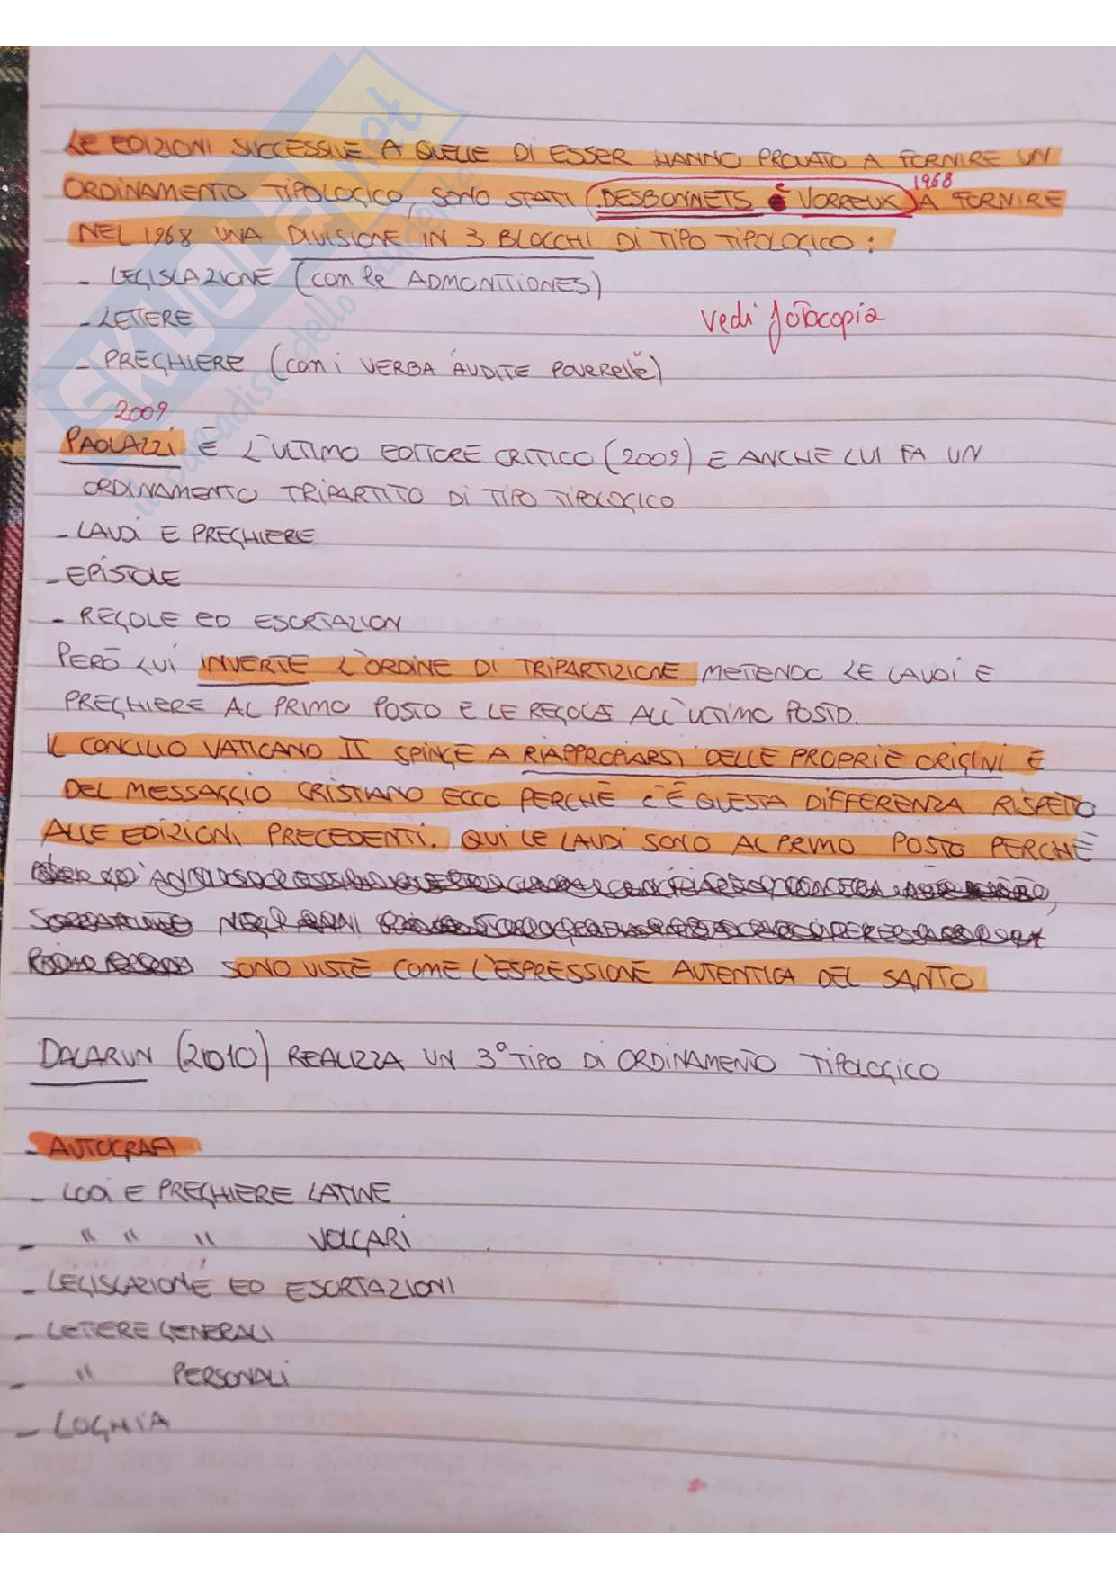 LE EDIZIONI SUCCESSIVE A QUELLE DI ESSER HANNO PROVATO A FORNIRE UN
ORDINAMENTO TIPOLOGICO, SONO STATI (DESBONNETS E VORREUX) A FORNIRE
1968
NEL 1968 UNA DIVISIONE IN 3 BLOCCHI DI TIPO TIPOLOGICO:
- LEGISLAZIONE (con le ADMONITIONES)
- LETTERE
vedi fotocopia
- PREGHIERE (con i VERBA AUDITE POVERELLE)
2009
PAOLAZZI È L'ULTIMO EDITORE CRITICO (2009) E ANCHE LUI FA UN
ORDINAMENTO TRIPARTITO DI TIPO TIPOLOGICO
- LAUDI E PREGHIERE
- EPISTOLE
- REGOLE ED ESORTAZION
PERÒ LUI INVERTE L'ORDINE DI TRIPARTIZIONE METTENDO LE LAUDI E
PREGHIERE AL PRIMO POSTO E LE REGOLE ALL'ULTIMO POSTO.
IL CONCILIO VATICANO II SPINGE A RIAPPROPIARSI DELLE PROPRIE ORIGINI E
DEL MESSAGGIO CRISTIANO ECCO PERCHÈ C'È QUESTA DIFFERENZA RISPETTO
ALLE EDIZIONI PRECEDENTI. QUI LE LAUDI SONO AL PRIMO POSTO PERCHÈ
SONO VISTE COME L'ESPRESSIONE AUTENTICA DEL SANTO
DALARUN (2010) REALIZZA UN 3° TIPO DI ORDINAMENTO TIPOLOGICO
- AUTOGRAFI
- LODI E PREGHIERE LATINE
- " " " VOLGARI
- LEGISLAZIONE ED ESORTAZIONI
- LETTERE GENERALI
- " PERSONALI
- LOGHIA